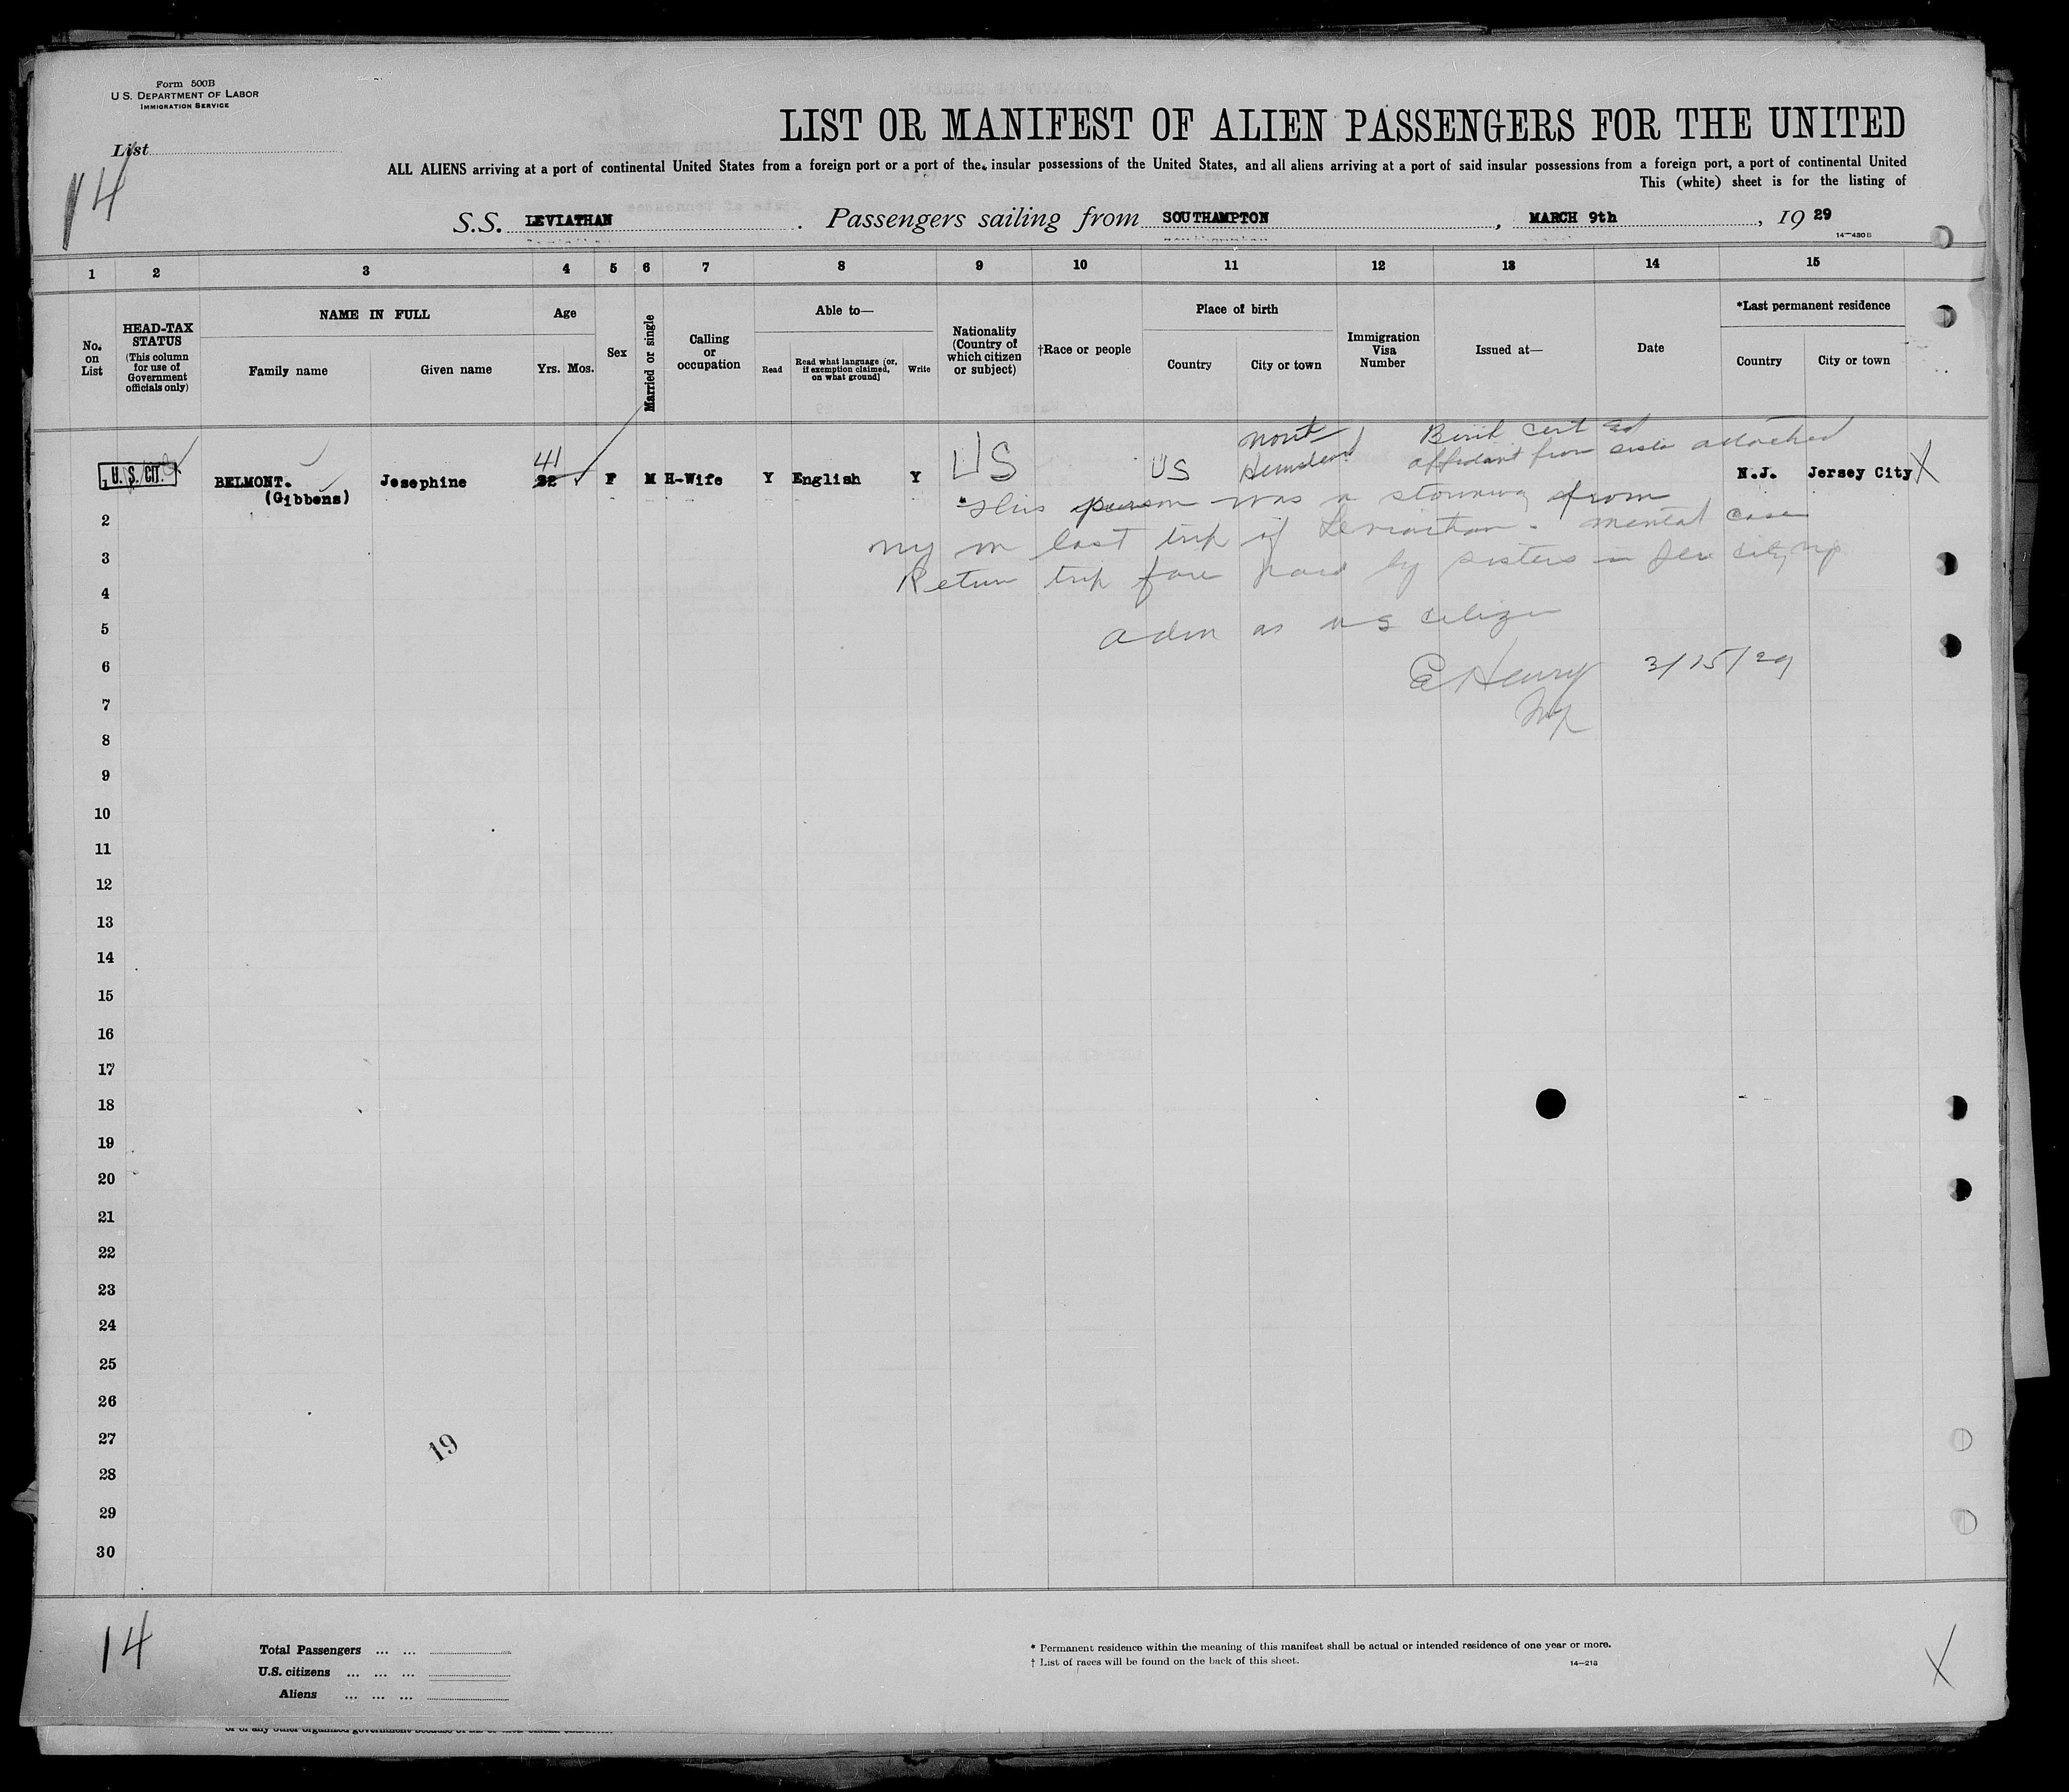 Form 500B
U S. DEPARTMENT OF LABOR
IMMIGRATION SERVICE
List
14
LIST OR MANIFEST OF ALIEN PASSENGERS FOR THE UNITED
ALL ALIENS arriving at a port of continental United States from a foreign port or a port of the insular possessions of the United States, and all aliens arriving at a port of said insular possessions from a foreign port, a port of continental United
This (white) sheet is for the listing of
S.S. LEVIATHAN. Passengers sailing from SOUTHAMPTON, MARCH 9th, 19 29
14—430B
1 2 3 4 5 6 7 8 9 10 11 12 13 14 15
No. on List
HEAD-TAX STATUS
(This column for use of Government officials only)
NAME IN FULL
Family name
Given name
Age
Yrs. Mos.
Sex
Married or single
Calling or occupation
Able to—
Read
Read what language [or, if exemption claimed, on what ground]
Write
Nationality (Country of which citizen or subject)
†Race or people
Place of birth
Country
City or town
Immigration Visa Number
Issued at—
Date
*Last permanent residence
Country
City or town
1 U. S. CIT. BELMONT. (Gibbens) Josephine 41 32 F M H-Wife Y English Y US US North Hempstead Birth cert and affidavit from sister attached N.J. Jersey City X
*This person was a stowaway from
NY on last trip of Leviathan. mental case
Return trip fare paid by sisters in Jer City NJ
adm as US citizen
E Henry 3/15/29
Insp
2
3
4
5
6
7
8
9
10
11
12
13
14
15
16
17
18
19
20
21
22
23
24
25
26
27
28
29
30
19
14
Total Passengers ... ...
U.S. citizens ... ... ...
Aliens ... ... ...
* Permanent residence within the meaning of this manifest shall be actual or intended residence of one year or more.
† List of races will be found on the back of this sheet.
14—213
X